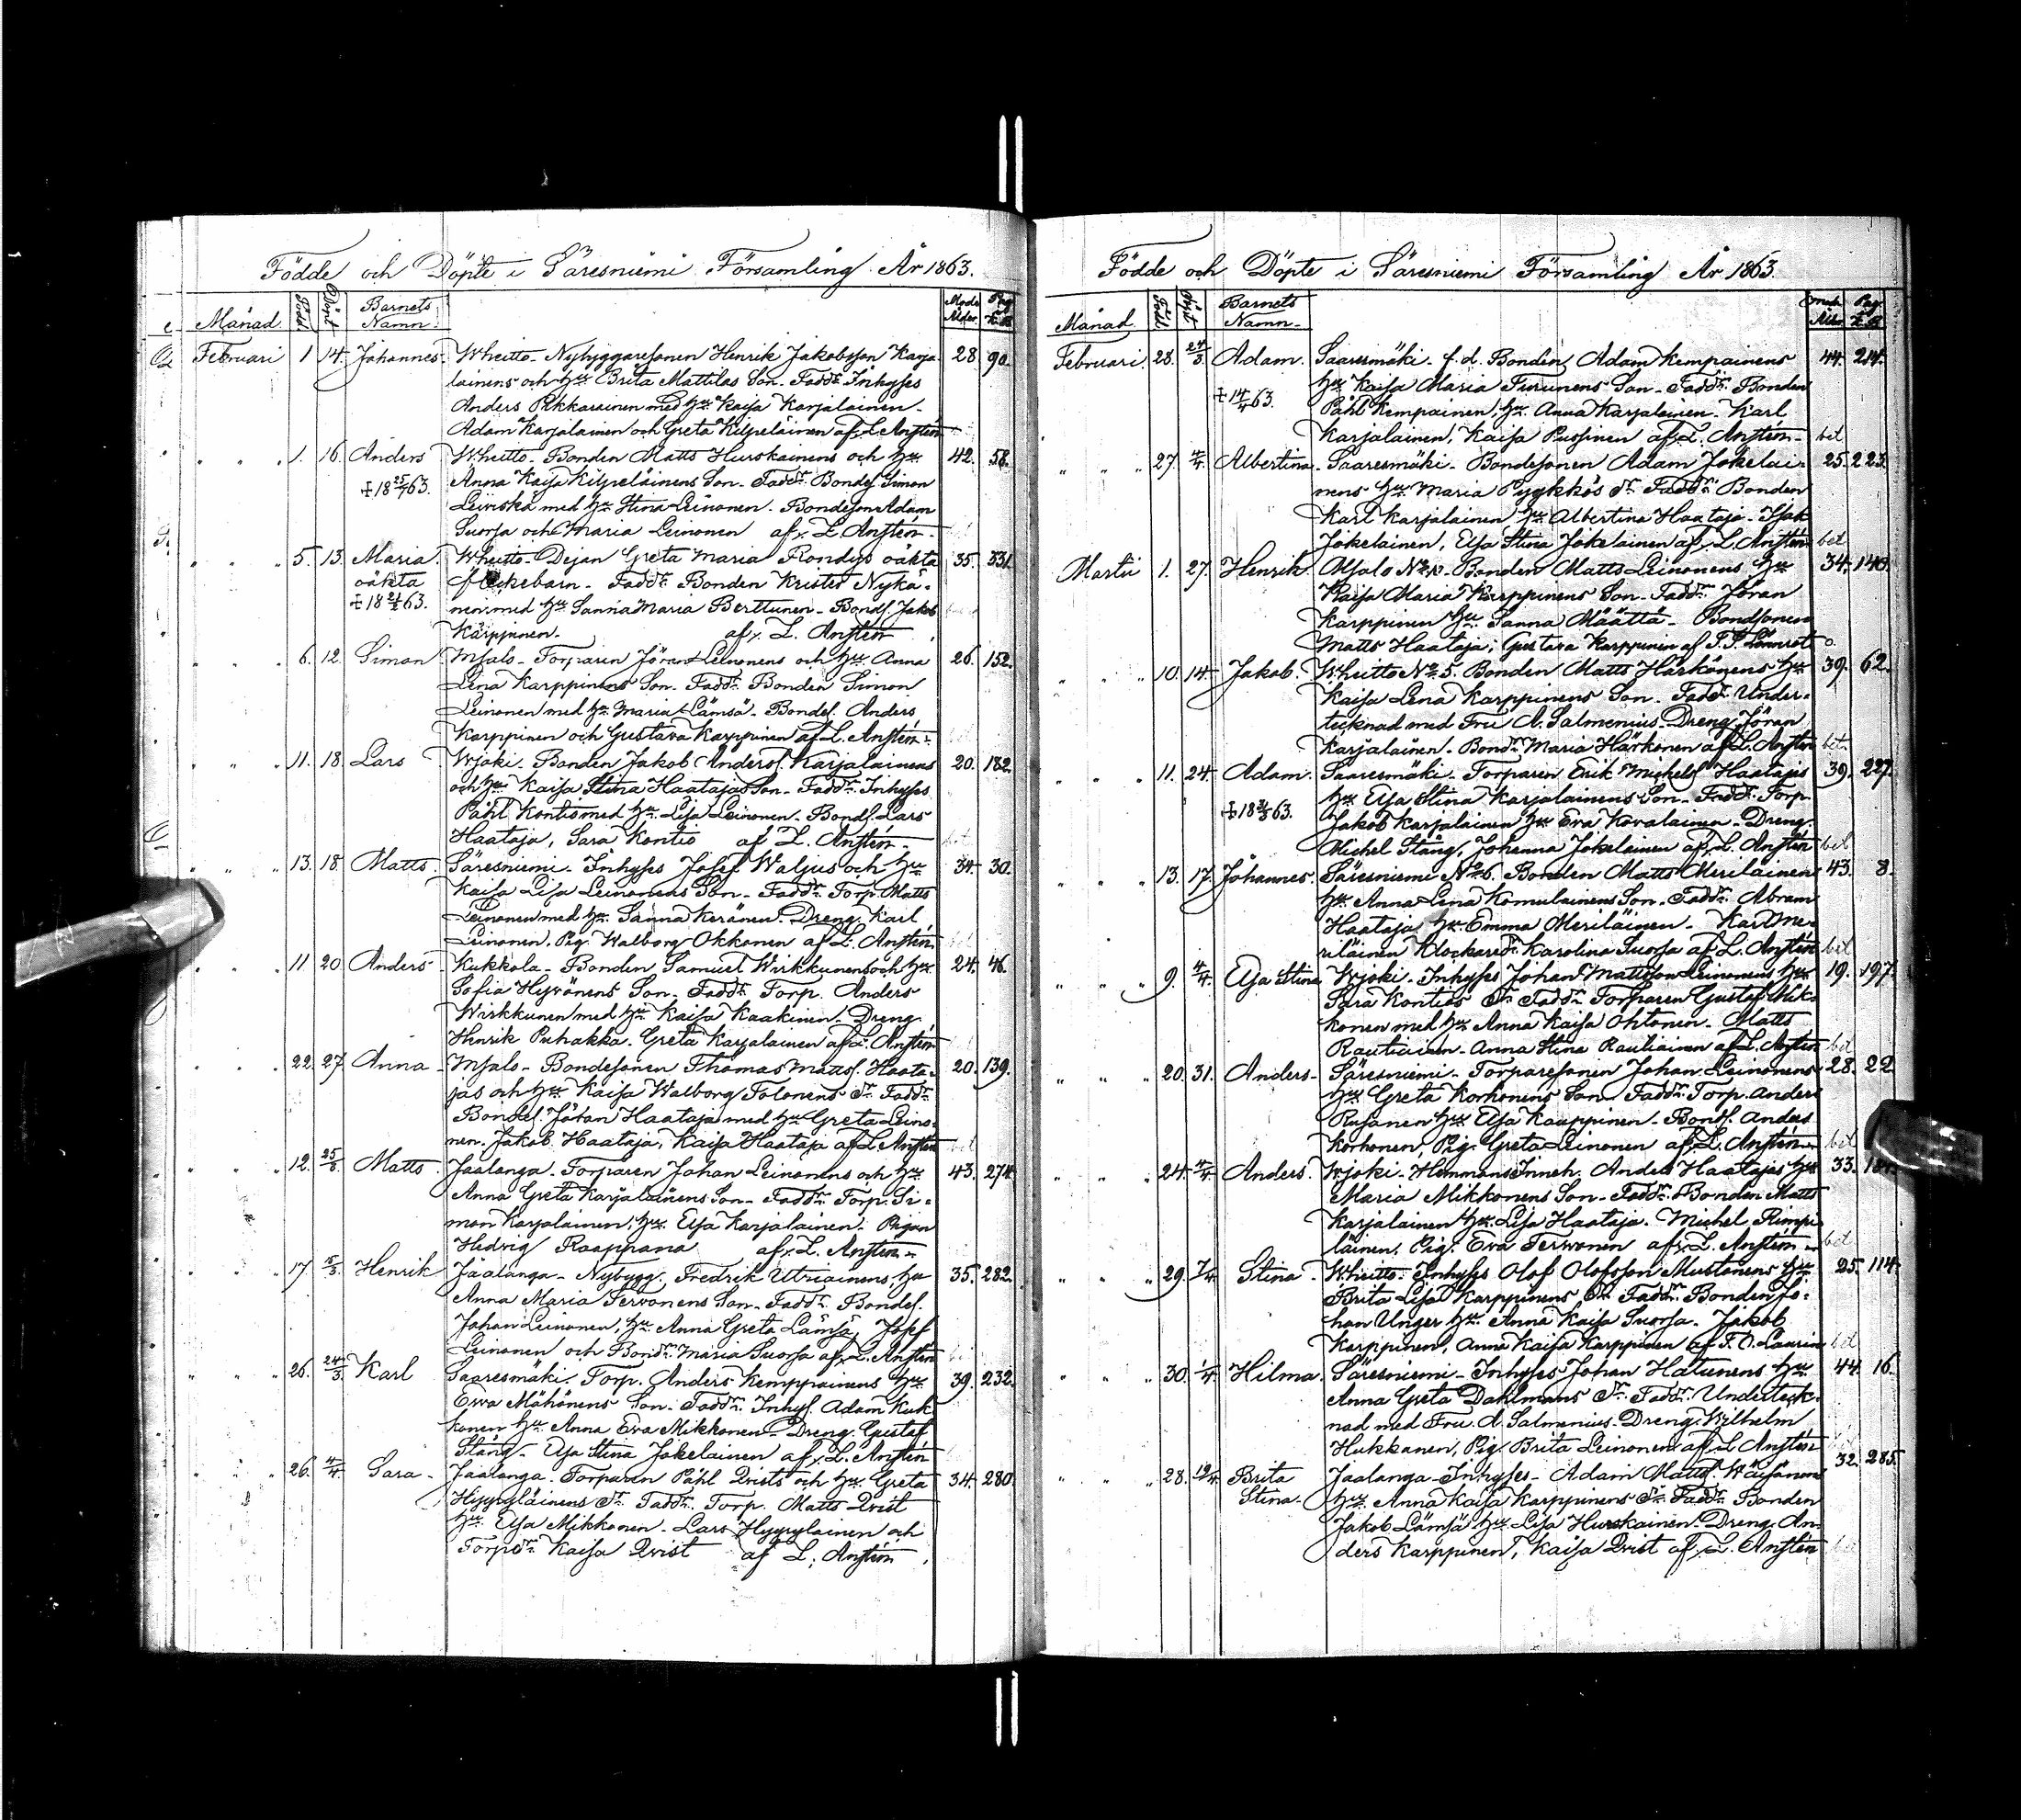 Födde och Döpte i Säresniemi Församling År 1863.
Månad Född Döpt Barnets Namn Mods Ålder Pag. K.B.
Februari 1 14. Johannes. Wheitto- Nybyggaresonen Henrik Jakobsson Karja- 28 90.
lainens och hu Brita Mattilas Son. Faddr Inhyses
Anders Pikkarainen med hu Kaisa Karjalainen.
Adam Karjalainen och Greta Kilpeläinen af L. Anstén
" " 1. 16. Anders Wheitto- Bonden Matts Hurskainens och hu 42. 58.
‡ 18 25/7 63. Anna Kaisa Kilpeläinens Son- Faddr Bondes. Simon
Leiviskä med hu Stina Leinonen. Bondeson Adam
Suorsa och Maria Leinonen af L. Anstén
" " 5. 13. Maria Wheitto- Dejan Greta Maria Rondys oäkta 35. 331.
oäkta flickebarn- Faddr Bonden Krister Nykä-
‡ 18 63. nen med hu Sanna Maria Berttunen- Bonds. Jakob
Karppinen. af L. Anstén
" " 6. 12. Simon Msalo- Torparen Jöran Leinonens och hu Anna 26. 152.
Lena Karppinens Son. Faddr Bonden Simon
Leinonen med hu Maria Lämsä- Bondes. Anders
Karppinen och Gustava Karppinen af L. Anstén
" " 11. 18. Lars Wjoki. Bonden Jakob Anders. Karjalainens 20. 182.
och hu Kaisa Stina Haatajas Son- Faddr Inhyses
Påhl Kontio med hu Lisa Leinonen- Bonds. Lars
Haataja, Sara Kontio af L. Anstén
" " 13. 18. Matts. Säresniemi. Inhyses Josef Waljus och hu 34. 30.
Kaisa Lisa Leinonens Son- Faddr Torp. Matts
Leinonen med hu Sanna Keränen. Dreng. Karl
Leinonen, Pig. Walborg Okkonen af L. Anstén
" " 11 20 Anders- Kukkola- Bonden Samuel Wirkkunens och hu 24. 46.
Sofia Hyvönens Son- Faddr Torp. Anders
Wirkkunen med hu Kaisa Kaakinen- Dreng.
Henrik Puhakka- Greta Karjalainen af L. Anstén
" " 22. 27. Anna- Msalo- Bondesonen Thomas Matts. Haata- 20. 139.
jas och hu Kaisa Walborg Tolonens dr Faddr
Bondes. Jöran Haataja med hu Greta Leino-
nen. Jakob Haataja, Kaisa Haataja af L. Anstén
" " 12. 25/3. Matts. Jaalanga. Torparen Johan Leinonens och hu 43. 274.
Anna Greta Karjalainens Son- Faddr Torp. Si-
mon Karjalainen, hu Elsa Karjalainen. Pigan
Hedvig Raappana af L. Anstén
" " 17. 15/3. Henrik Jaalanga- Nybygg. Fredrik Utriainens, hu 35. 282.
Anna Maria Tervonens Son- Faddr Bondes.
Johan Leinonen, hu Anna Greta Lämsä, Josef
Leinonen och Bondr Maria Suorsa af L. Anstén
" " 26. 24/3. Karl Saaresmäki. Torp. Anders Kemppainens hu 39. 232.
Ewa Mähönens Son- Faddr Inhys. Adam Kuk-
konen hu Anna Eva Mikkonen- Dreng. Gustaf
Stång- Elsa Stina Jokelainen af L. Anstén
" " 26. 4/4. Sara- Jaalanga. Torparen Påhl Qvists och hu Greta 34. 280.
Hyyryläinens dr Faddr Torp. Matts Qvist
hu Elsa Mikkonen- Lars Hyyryläinen och
Torpdr Kaisa Qvist af L. Anstén
Födde och Döpte i Säresniemi Församling År 1863.
Månad Född Döpt Barnets Namn- Mods Ålder Pag. K.B.
Februari. 28. 24/3. Adam. Saaresmäki. f.d. Bonden Adam Kempainens 44. 214.
‡ 14/4 63. hu Kaisa Maria Turunens Son- Faddr Bonden
Påhl Kempainen, hu Anna Karjalainen- Karl
Karjalainen, Kaisa Pussinen af L. Anstén- bet
" " 27. 4/4. Albertina- Saaresmäki- Bondesonen Adam Jokelai- 25. 223.
nens hu Maria Pyykkös dr Faddr Bonden
Karl Karjalainen hu Albertina Haataja- Isak
Jokelainen, Elsa Stina Jokelainen af L. Anstén bet
Martii 1. 27. Henrik. Msalo No 10- Bonden Matts Leinonens hu 34. 140.
Kaisa Maria Karppinens Son- Faddr Jöran
Karppinen hu Sanna Määttä- Bondsonen
Matts Haataja, Gustava Karppinen af
" " 10. 14. Jakob. Wheitto No 5. Bonden Matts Härkönens hu 39. 62.
Kaisa Lena Karppinens Son. Faddr Under-
tecknad med Fru A. Salmenius- Dreng. Jöran
Karjalainen- Bondr Maria Härkönen af L. Anstén bet
" " 11. 24. Adam. Saaresmäki. Torparen Erik Michels. Haatajas 39. 227.
‡ 18 63. hu Elsa Stina Karjalainens Son- Faddr Torp.
Jakob Karjalainen hu Eva Kovalainen- Dreng.
Michel Stång, Johanna Jokelainen af L. Anstén bet
" " 13. 17. Johannes. Säresniemi No 6. Bonden Matts Meriläinens 43. 8.
hu Anna Lena Komulainens Son. Faddr Abram
Haataja, hu Emma Meriläinen- Karl Me-
riläinen Klockaredr Karolina Suorsa af L. Anstén bet
" " 9. 4/4. Elsa Stina Wjoki- Inhyses Johan Mattsson Leinonens hu 19. 197.
Sara Kontios dr Faddr Torparen Gustaf Mik-
konen med hu Anna Kaisa Ohtonen- Matts
Rautiainen- Anna Stina Rautiainen af L. Anstén bet
" " 20. 31. Anders- Säresniemi- Torparesonen Johan Leinonens 28. 22
hu Greta Korhonens Son Faddr Torp. Anders
Rusanen hu Elsa Kauppinen- Bonds. Anders
Korhonen, Pig. Greta Leinonen af L. Anstén bet
" " 24. 4/4. Anders. Wjoki- Hemmans Inneh. Anders Haatajas hu 33. 184.
Maria Mikkonens Son- Faddr Bonden Matts
Karjalainen hu Lisa Haataja. Michel Rimpi-
läinen. Pig. Eva Terwonen af L. Anstén bet
" " 29. 7/4 Stina- Wheitto- Inhyses Olof Olofsson Mustonens hu 25. 114.
Brita Lisa Karppinens dr Faddr Bonden Jo-
han Unger hu Anna Kaisa Suorsa. Jakob
Karppinen, Anna Kaisa Karppinen af bet
" " 30. 1/4 Hilma. Säresniemi- Inhyses Johan Hatunens hu 44. 16.
Anna Greta Dahlmans dr Faddr Underteck-
nad med Fru A. Salmenius- Dreng. Wilhelm
Hukkanen, Pig. Brita Leinonen af L. Anstén
" " 28. 12/4. Brita Jaalanga- Inhyses- Adam Matts. Wäisänens 32. 285.
Stina- hu Anna Kaisa Karppinens dr Faddr Bonden
Jakob Lämsä hu Lisa Hurskainen- Dreng. An-
ders Karppinen, Kaisa Qvist af L. Anstén